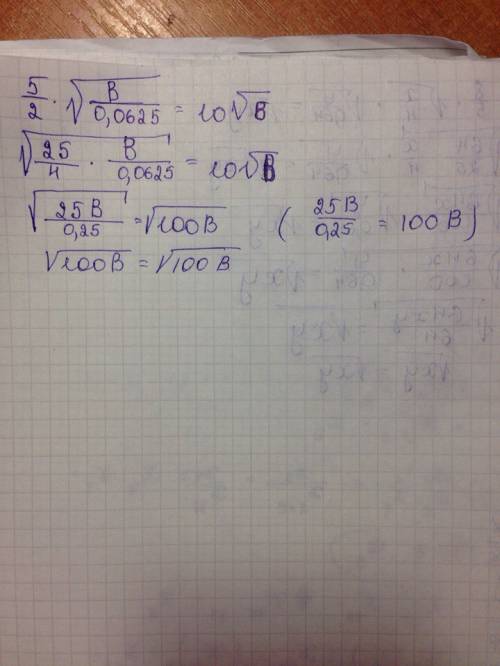 5/2 · √(B/0,0625) = 10√B
√(25/4 · B/0,0625) = 10√B
√(25B/0,25) = √100B ( 25B/0,25 = 100B )
√100B = √100B